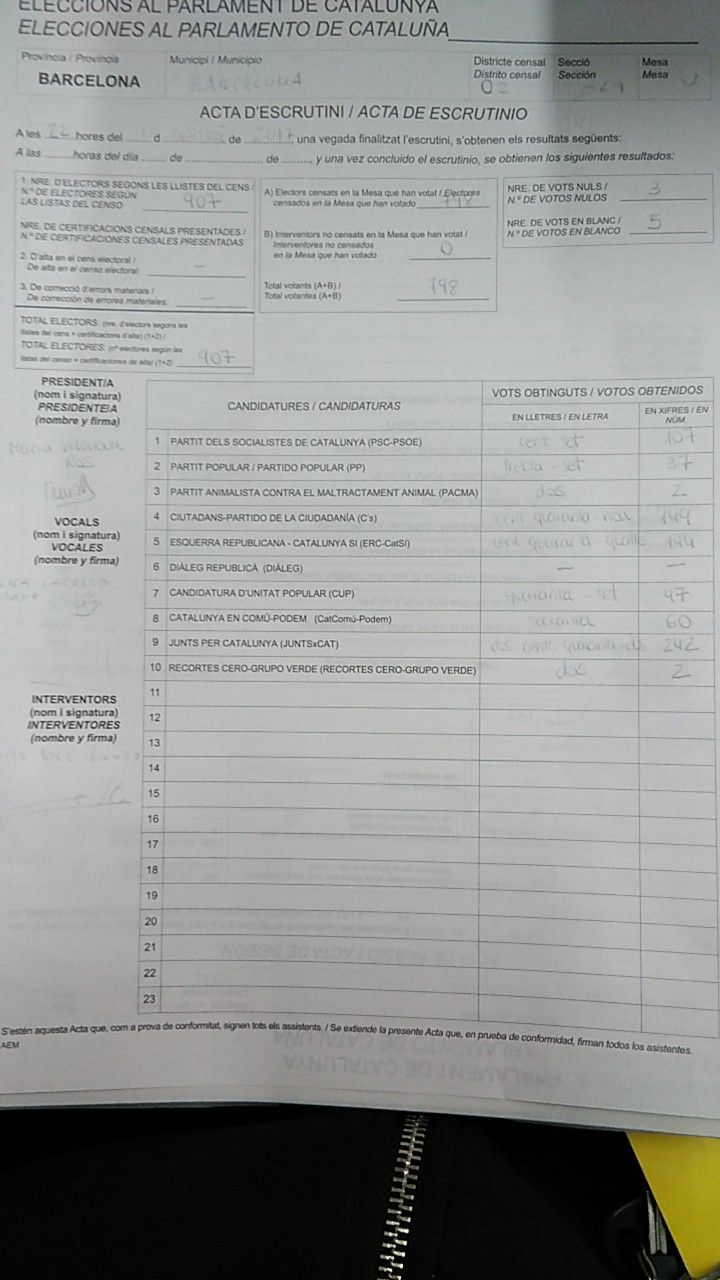 ELECCIONS AL PARLAMENT DE CATALUNYA
ELECCIONES AL PARLAMENTO DE CATALUÑA
Província / Provincia
BARCELONA
Municipi / Municipio
BARCELONA
Districte censal
Distrito censal
02
Secció
Sección
Mesa
Mesa
U
ACTA D'ESCRUTINI / ACTA DE ESCRUTINIO
A les hores del d de 2017, una vegada finalitzat l'escrutini, s'obtenen els resultats següents:
A las horas del día de de , y una vez concluido el escrutinio, se obtienen los siguientes resultados:
1. NRE. D'ELECTORS SEGONS LES LLISTES DEL CENS /
N.º DE ELECTORES SEGÚN
LAS LISTAS DEL CENSO 907
NRE. DE CERTIFICACIONS CENSALS PRESENTADES /
N.º DE CERTIFICACIONES CENSALES PRESENTADAS
2. D'alta en el cens electoral /
De alta en el censo electoral: —
3. De correcció d'errors materials /
De corrección de errores materiales: —
TOTAL ELECTORS: (nre. d'electors segons les
llistes del cens + certificacions d'alta) (1+2) /
TOTAL ELECTORES: (nº electores según las
listas del censo + certificaciones de alta) (1+2) 907
A) Electors censats en la Mesa que han votat / Electores
censados en la Mesa que han votado 798
B) Interventors no censats en la Mesa que han votat /
Interventores no censados
en la Mesa que han votado 0
Total votants (A+B) /
Total votantes (A+B) 798
NRE. DE VOTS NULS /
N.º DE VOTOS NULOS 3
NRE. DE VOTS EN BLANC /
N.º DE VOTOS EN BLANCO 5
PRESIDENT/A
(nom i signatura)
PRESIDENTE/A
(nombre y firma)
VOCALS
(nom i signatura)
VOCALES
(nombre y firma)
INTERVENTORS
(nom i signatura)
INTERVENTORES
(nombre y firma)
CANDIDATURES / CANDIDATURAS
VOTS OBTINGUTS / VOTOS OBTENIDOS
EN LLETRES / EN LETRA
EN XIFRES / EN
NÚM.
1 PARTIT DELS SOCIALISTES DE CATALUNYA (PSC-PSOE) cent set 107
2 PARTIT POPULAR / PARTIDO POPULAR (PP) trenta-set 37
3 PARTIT ANIMALISTA CONTRA EL MALTRACTAMENT ANIMAL (PACMA) dos 2
4 CIUTADANS-PARTIDO DE LA CIUDADANÍA (C's) cent quaranta-nou 149
5 ESQUERRA REPUBLICANA - CATALUNYA SI (ERC-CatSI) cent quaranta-quatre 144
6 DIÀLEG REPUBLICÀ (DIÀLEG) — —
7 CANDIDATURA D'UNITAT POPULAR (CUP) quaranta-set 47
8 CATALUNYA EN COMÚ-PODEM (CatComú-Podem) seixanta 60
9 JUNTS PER CATALUNYA (JUNTSxCAT) dos-cents quaranta-dos 242
10 RECORTES CERO-GRUPO VERDE (RECORTES CERO-GRUPO VERDE) dos 2
11
12
13
14
15
16
17
18
19
20
21
22
23
S'estén aquesta Acta que, com a prova de conformitat, signen tots els assistents. / Se extiende la presente Acta que, en prueba de conformidad, firman todos los asistentes.
AEM